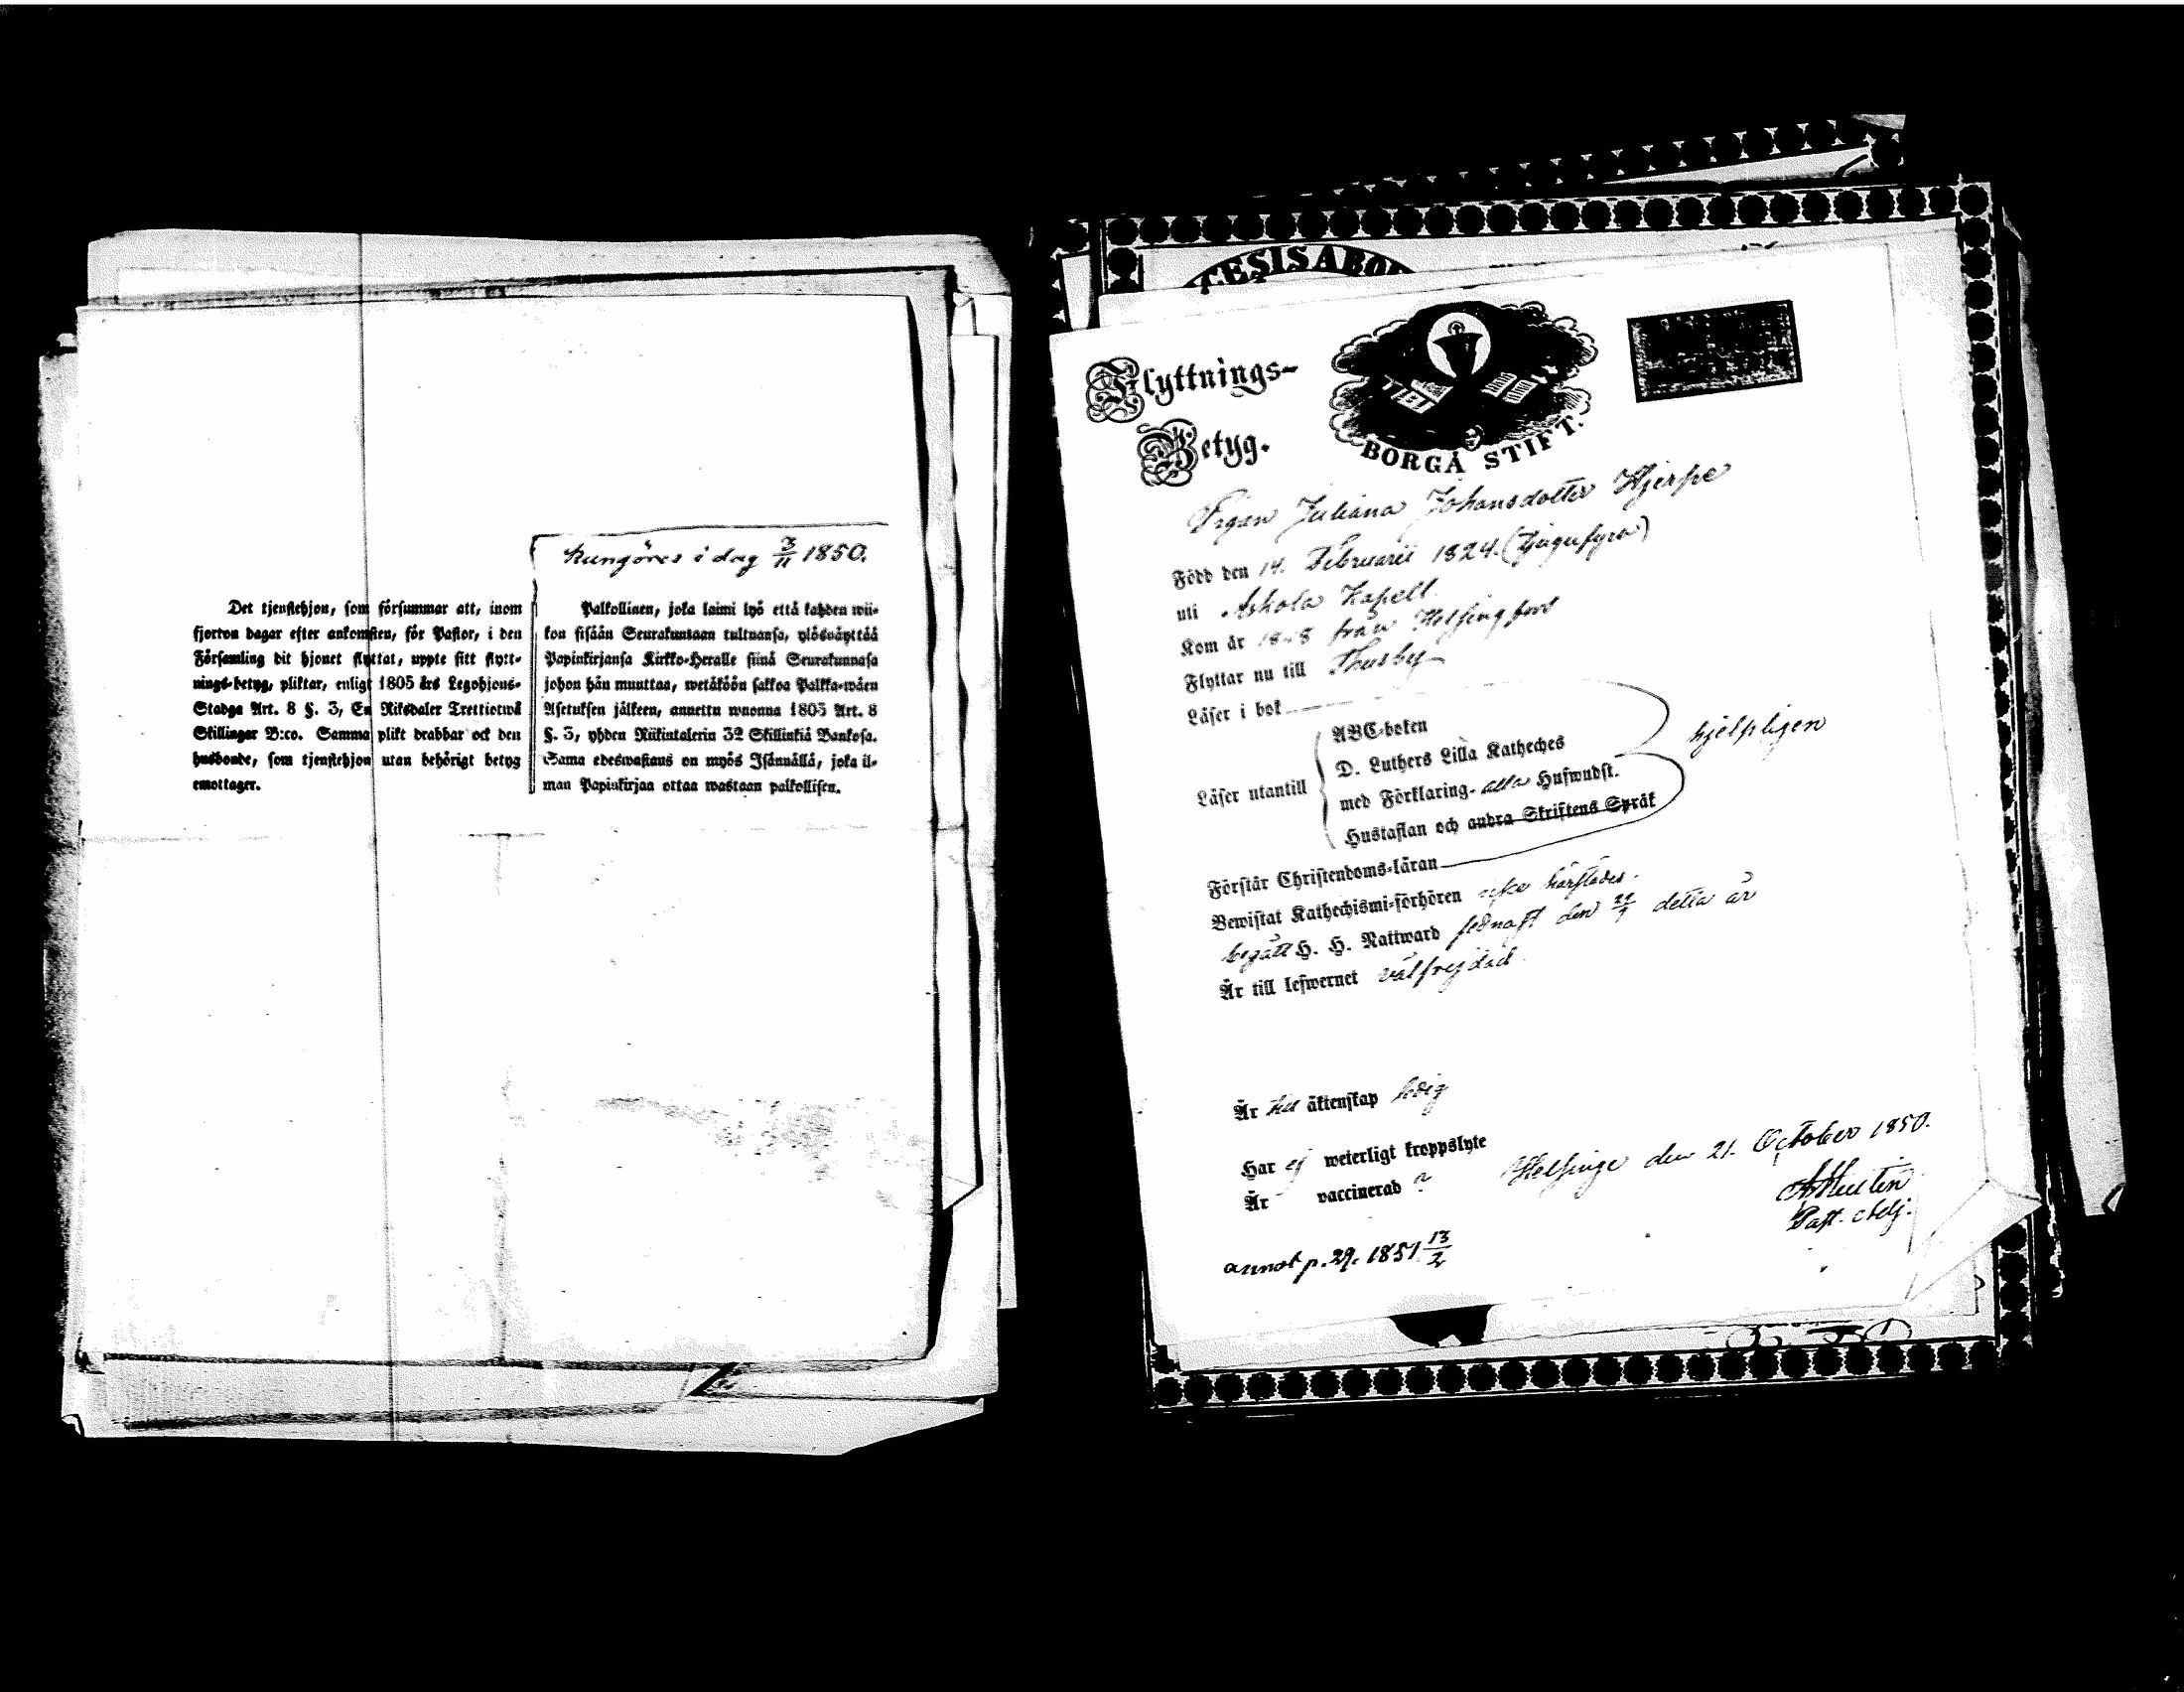 Kungöres i dag 3/11 1850.
Det tjenstehjon, som försummar att, inom
fjorton dagar efter ankomsten, för Pastor, i den
Församling dit hjonet flyttat, uppte sitt flytt-
nings-betyg, pliktar, enligt 1805 års Legohjons-
Stadga Art. 8 §. 3, En Riksdaler Trettiotwå
Skillingar B:co. Samma plikt drabbar ock den
husbonde, som tjenstehjon utan behörigt betyg
emottager.
Palkollinen, joka laimi lyö että kahden wii-
kon sisään Seurakuntaan tultuansa, ylösnäyttää
Papinkirjansa Kirkko-Heralle siinä Seurakunnasa
johon hän muuttaa, wetäköön sakkoa Palkka-wäen
Asetuksen jälkeen, annettu wuonna 1805 Art. 8
§. 3, yhden Riikintalerin 32 Skillinkiä Bankosa.
Sama edeswastaus on myös Isännällä, joka il-
man Papinkirjaa ottaa wastaan palkollisen.
TESISABO
Flyttnings-
Betyg.
BORGÅ STIFT.
Pigan Juliana Johansdotter Hjerpe
Född den 14. Februarii 1824. (tjugufyra)
uti Askola Kapell.
Kom år 18-8 från Helsingfors
Flyttar nu till Thusby
Läser i bok
Läser utantill
ABC-boken
D. Luthers Lilla Katheches
med Förklaring. alla Huswudst.
Hustaflan och andra Skriftens Språk
hjelpligen
Förstår Christendoms-läran
Bewistat Kathechismi-förhören icke härstädes.
begått H. H. Nattward sednast den 21/7 detta år
Är till lefwernet välfrejdad
Är till äktenskap ledig
Har ej weterligt kroppslyte
Är vaccinerad ?
Helsinge den 21. October 1850.
Past. Adj.
annot p. 29. 1851 13/2